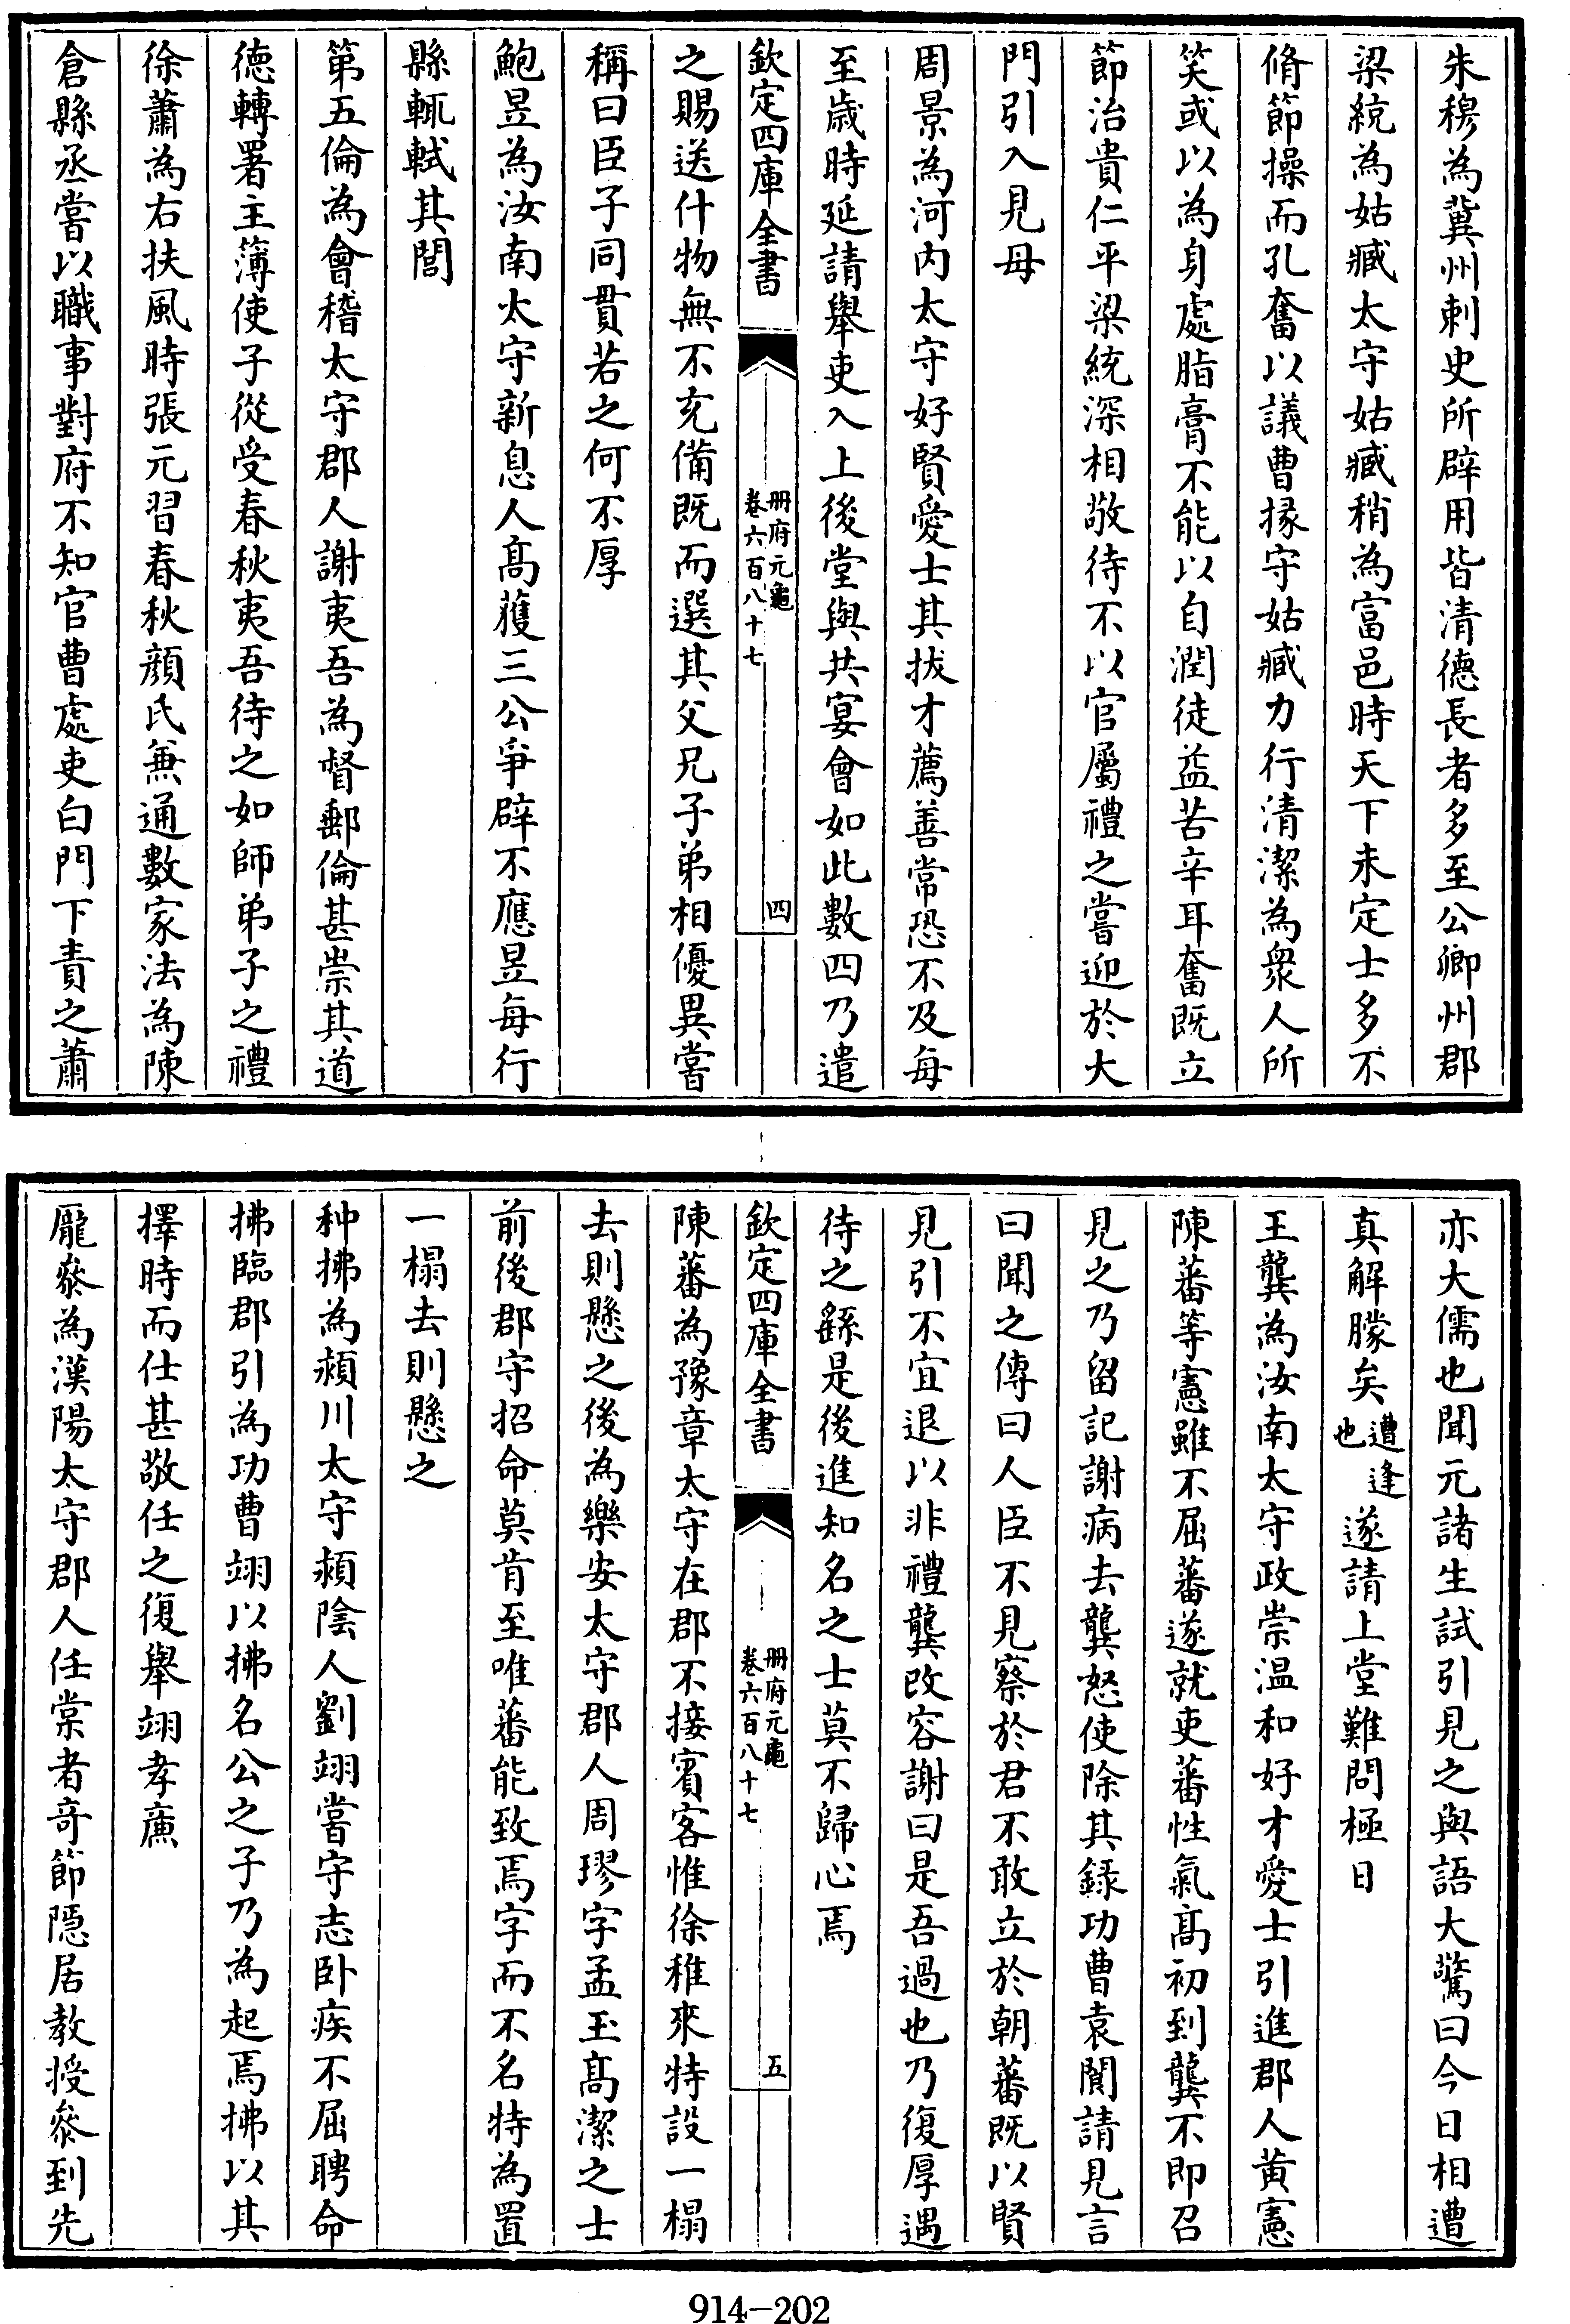 朱穆為冀州刺史所辟用皆清德長者多至公卿州郡
梁統為姑臧太守姑臧稍為富邑時天下未定士多不
脩節操而孔奮以議曹掾守姑臧力行清潔為衆人所
笑或以為身處脂膏不能以自潤徒益苦辛耳奮既立
節治貴仁平梁統深相敬待不以官屬禮之嘗迎於大
門引入見母
周景為河内太守好賢愛士其拔才薦善常恐不及每
至歲時延請舉吏入上後堂與共宴會如此數四乃遣
欽定四庫全書
册府元龜
卷六百八十七
四
之賜送什物無不充備既而選其父兄子弟相優異嘗
稱曰臣子同貫若之何不厚
鮑昱為汝南太守新息人髙蒦三公爭辟不應昱每行
縣輒軾其閭
第五倫為會稽太守郡人謝夷吾為督郵倫甚崇其道
德轉署主簿使子從受春秋夷吾待之如師弟子之禮
徐蕭為右扶風時張元習春秋顔氏兼通數家法為陳
倉縣丞嘗以職事對府不知官曹處吏白門下責之蕭
亦大儒也聞元諸生試引見之與語大驚曰今日相遭
真解矇矣遭逢也遂請上堂難問極日
王龔為汝南太守政崇温和好才愛士引進郡人黄憲
陳蕃等憲雖不屈蕃遂就吏蕃性氣髙初到龔不即召
見之乃留記謝病去龔怒使除其録功曹袁閬請見言
曰聞之傳曰人臣不見察於君不敢立於朝蕃既以賢
見引不宜退以非禮龔改容謝曰是吾過也乃復厚遇
待之繇是後進知名之士莫不歸心焉
欽定四庫全書
册府元龜
卷六百八十七
五
陳蕃為豫章太守在郡不接賓客惟徐稚來特設一榻
去則懸之後為樂安太守郡人周璆字孟玉髙潔之士
前後郡守招命莫肯至唯蕃能致焉字而不名特為置
一榻去則懸之
种拂為潁川太守潁陰人劉翊嘗守志卧疾不屈聘命
拂臨郡引為功曹翊以拂名公之子乃為起焉拂以其
擇時而仕甚敬任之復舉翊孝廉
龎參為漢陽太守郡人任棠者竒節隠居教授參到先
914-202